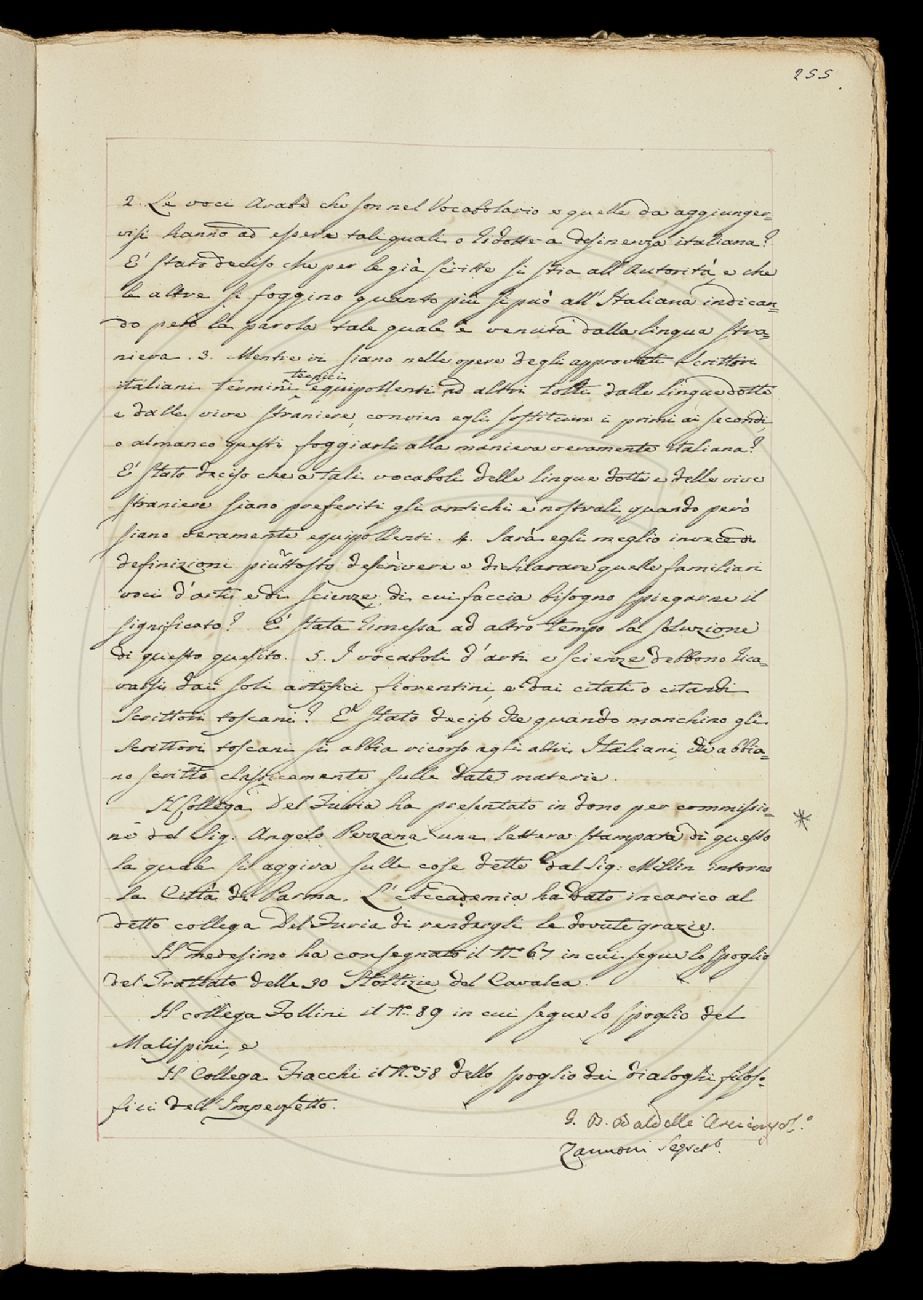 255
2. Le voci Arabe che son nel Vocabolario e quelle da aggiunger=
visi hanno ad essere tali quali, o ridotte a desinenza italiana?
E' stato deciso che per le già scritte si stia all'Autorità, e che
le altre si foggino quanto più si può all'Italiana indican=
do però la parola tale quale è venuta dalla lingua stra=
niera. 3. Mentre vi siano nelle opere degli approvati Scrittori
tecnici
italiani termini equipollenti ad altri tolti dalle lingue dotte
e dalle vive straniere, convien egli sostituire i primi ai secondi,
o almanco questi foggiarli alla maniera veramente Italiana?
E' stato deciso che a tali vocaboli delle lingue dotte e delle vive
straniere siano preferiti gli antichi e nostrali, quando però
siano veramente equipollenti. 4. Sarà egli meglio invece di
definizioni piuttosto descrivere e dichiarare quelle familiari
voci d'arti e di scienze, di cui faccia bisogno spiegarne il
significato? E' stata rimessa ad altro tempo la soluzione
di questo quesito. 5. I vocaboli d'arti e scienze debbono rica=
varsi dai soli artefici fiorentini, e dai citati o citandi
Scrittori toscani? E' stato deciso che quando manchino gli
Scrittori toscani si abbia ricorso agli altri Italiani, che abbia=
no scritto classicamente sulle date materie.
Il Collega Del Furia ha presentato in dono per commissio=
ne del Sig. Angelo Pezzana una lettera stampata di questo
la quale si aggira sulle cose dette dal Sig. Millin intorno
la Città di Parma. L'Accademia ha dato incarico al
detto collega Del Furia di rendergli le dovute grazie.
Il medesimo ha consegnato il N.° 67 in cui segue lo spoglio
del Trattato delle 30 Stoltizie del Cavalca.
Il collega Follini il N.° 89 in cui segue lo spoglio del
Malispini, e
Il Collega Fiacchi il N.° 58 dello spoglio dei dialoghi filoso=
fici dell'Imperfetto.
G. B. Baldelli Arciconsol.°
Zannoni Segret.°